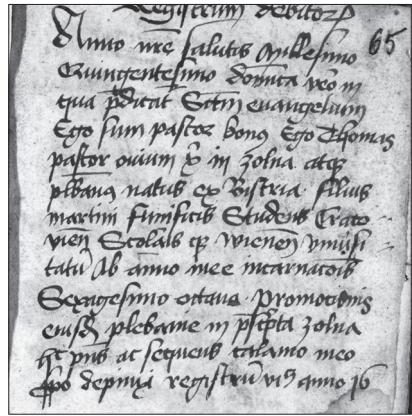 Registrum debitorum
65
Anno nre salutis Millesimo
Quingentesimo domica vero in
qua predicat Sctm euangelium
Ego sum pastor bonus Ego Thomas
pastor ouium in zolna atque
plbanus natus ex Bistria filius
martini Funificis Studens Craco
vien Scolaris wienen vniusi
tatu Ab anno mee incarnacois
Sexagesimo octauo promocionis
eiusdem plebanie in zolna
ac sequens calamo meo
depinxi registru anno 16